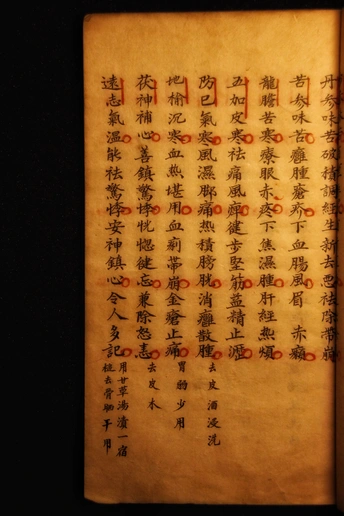 丹参味苦破積調経生新去悪祛除帶崩
苦参味苦癰腫瘡疥下血腸風眉 赤癩
龍膽苦寒療眼赤疼下焦濕腫肝経熱煩
五加皮寒祛痛風痺健步堅筋益精止瀝
去皮酒浸洗
防已氣寒風濕脚痛熱積膀胱消癰散腫
地榆沉寒血熱堪用血痢帶崩金瘡止痛
胃弱少用
茯神補心善鎮驚悸恍惚健忘兼除怒恚
去皮木
遠志氣溫能祛驚悸安神鎮心令人多記
用甘草湯漬一宿
去骨 用